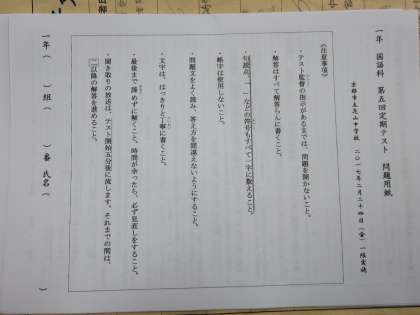 一年 国語科 第五回定期テスト 問題用紙
京都市立花山中学校 二〇一七年二月二十四日(金)一限実施
《注意事項》
・テスト監督の指示があるまでは、問題を開かないこと。
・解答はすべて解答らんに書くこと。
・句読点、「 」などの符号もすべて一字に数えること。
・略字は使用しないこと。
・問題文をよく読み、答え方を間違えないようにすること。
・文字は、はっきりと丁寧に書くこと。
・最後まで諦めずに解くこと。時間が余ったら、必ず見直しをすること。
・聞き取りの放送は、テスト開始五分後に流します。それまでの間は、
二以降の解答を進めること。
一年( )組( )番 氏名( )